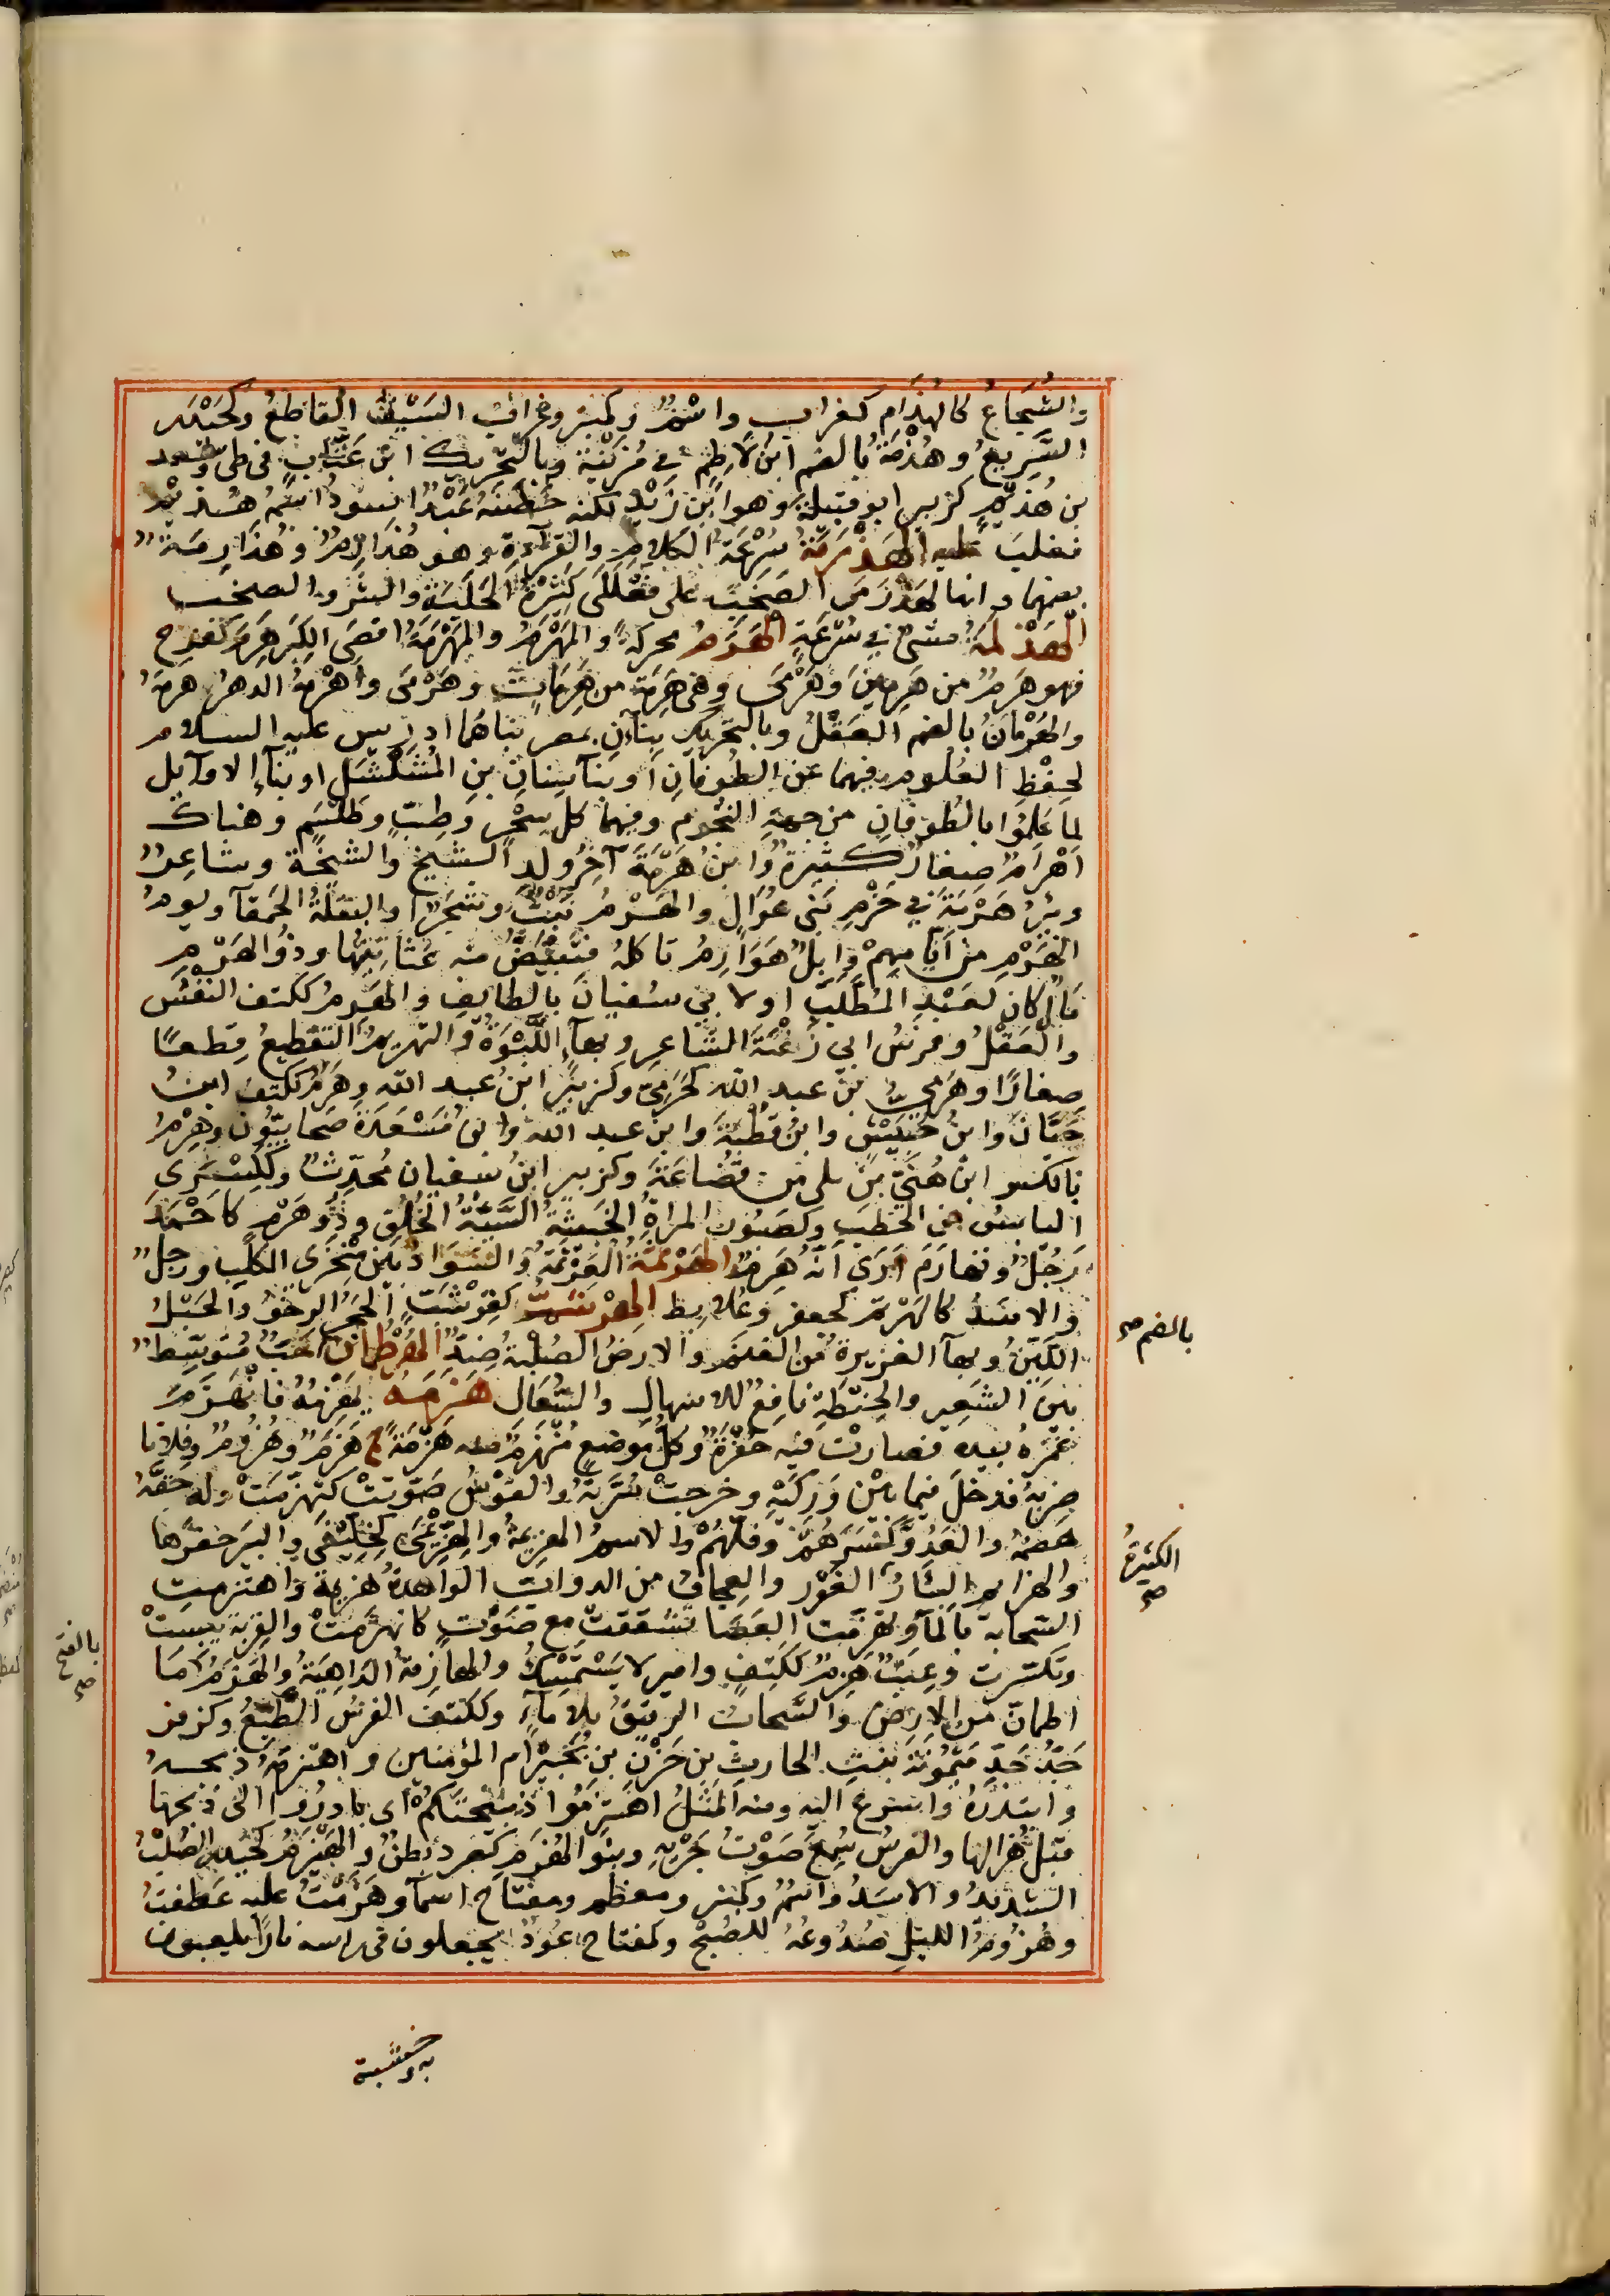 والشُّجَاعُ كالهُذَامِ كغرابٍ واسْمٌ وكمِنبَر وغراب السَّيْفُ القاطعُ وكحَيْدَر
السَّرِيعُ وهُذْمَةُ بالضم ابنُ لاطِمٍ في مُزَيْنَة وبالتحريك ابن عَتَّابٍ في طيّ وسعد
بن هُذَيْمٍ كزبير ابو قبيلة وهو ابن زَيْدٍ لكنه حَضَنَهُ عَبْدٌ اسودُ اسمُهُ هُذَيْمٌ
فغلبَ عليه الهَذْرَمَةُ سُرْعَةُ الكلامِ والقراءةِ وهو هُذَارِمٌ وهُذَارِمَةٌ
بضمهما وانها لهَذْرَمَى الصَخَبِ على فَعْلَلَى كَثِيرَةُ الجَلَبَة والشَّرّ والصخب
الهَذْلَمَةُ مَشْىٌ في سُرْعَةٍ الهَرَمُ محركةً والمَهْرَمُ والمَهْرَمَةُ اقصَى الكِبَرِ هَرِمَ كفرِح
فهو هَرِمٌ من هَرِمِينَ وهَرْمَى وهى هَرِمَةٌ من هَرِمَاتٍ وهَرْمَى واهْرَمَهُ الدهرُ وهرمَهُ
والهُرْمَانُ بالضم العَقْلُ وبالتحريك بناآن بمصر بناهُما ادريس عليه السلام
لحِفْظِ العُلومِ فيهما عن الطُوفانِ او بنآ سِنانِ بنِ المُشَلْشَلِ او بنآء الاوآيل
لما عَلِمُوا بالطُوفانِ من جهةِ النجُومِ وفيهما كل سِحْرٍ وطِبٍّ وطَلْسَمٍ وهناك
اهْرامٌ صِغارٌ كَثيرةٌ وابنُ هَرْمَةَ آخِرُ ولد الشَّيخ والشيخَة وشاعِرٌ
وبِئرُ هَرْمَةَ في حَزْمِ بَنى عُوَالٍ والهَرْمُ نَبْتٌ وشَجَرٌ او البقلَةُ الحَمقآ ويومُ
الهَرْمِ من أيّامِهِمْ وابِلٌ هَوَارِمُ تاكلهُ فتَبْيَضُّ منه عَثَانِينُها وذُو الهَرْمِ
مالٌ كان لعَبْدِ المُطَّلِبِ او لابي سُفيانَ بالطائِفِ والهَرِمُ ككتف النَّفْسُ
والعَقْلُ وفرسُ ابي زَعْنَةَ الشاعرِ وبهآء اللَّبُؤَةُ والتهرِيمُ التقطيعُ قِطَعًا
صِغارًا وهَرَمىُّ بنُ عبدِ الله كحَرَمِىّ وكزبيرٍ ابنُ عبد الله وهَرِمٌ ككتف ابنُ
حَيَّانَ وابنُ خَنْبَشٍ وابنُ قُطْبَةَ وابن عبد الله وابن مَسْعَدَةَ صَحابيّون وهِرْمُ
بالكسر ابن هُنَىِّ بن بلى من قُضَاعَةَ وكزبير ابنُ سفيان مُحدّثٌ وككِسْرَى
اليابسُ من الحَطَبِ وكصَبُورٍ المراةُ الخَبيثَةُ السَّيِّئَةُ الخُلُق وذُو هَرَمٍ كاحْمَدَ
رَجُلٌ وتهارَمَ اَرَى انّه هَرِمٌ الهَرْثَمَةُ العَرْتَمَةُ والسَّوَادُ بين مَنْخِرَى الكلبِ ورجلٌ
والاسَدُ كالهَرْثَم كجعفر وعُلابِط الهِرْشَمُّ كقِرْشَبٍّ الحَجَرُ الرخوُ والجَبَلُ
اللَّيِّنُ وبهآ الغزيرةُ من الغنم والارضُ الصُلْبةُ ضِدٌّ الهُرْطُمانُ حَبٌّ مُتوَسِّطٌ
بينَ الشَعِيرِ والحِنطةِ نافِعٌ للاسهالِ والسُّعَال هَزَمَهُ يَهْزِمُهُ فانهَزَمَ
غمَزَهُ بيدهِ فصارتْ فيه حُفْرَةٌ وكلُّ مَوضعٍ مُنْهَزِمٍ منه هَزْمَةٌ ج هَزْمٌ وهُزُومٌ وفلانا
ضربهُ فدخلَ فيما بيْن وَرِكَيْهِ وخرجتْ سُرَّتُهُ والقَوْسُ صَوَّتَتْ كتهزّمَتْ وله حقَّهُ
هضَمَهُ والعَدُوَّ كَسَرَهُمْ وفَلَّهُمْ والاسمُ الهزيمةُ والهِزِّيمَى كخِلِّيفَى والبِئرَ حفَرَها
والهزائِمُ البِئَارُ الغُزْر والعِجافُ من الدوابِّ الواحدةُ هزيمةٌ واهتزمَتِ
السّحابة بالمآ وتهزّمَت العَصَا تشققتْ مع صَوْتٍ كانهزَمَتْ والقِربَةُ يَبِسَتْ
وتكسّرت وغيثٌ هَزِمٌ ككتِفٍ وامير لا يَسْتَمْسِكُ والهازِمَةُ الدَاهِيَةُ والهَزْمُ ما
اطمانّ من الارضِ والسَّحابُ الرقيقُ بلا مآءٍ وككتف الفرسُ الطَّيِّعُ وكزفر
جَدُّ جَدِّ مَيْمُونَةَ بنتِ الحارثِ بن حَزْنِ بن بُجَيْرٍ ام المؤمنين واهتزمَهُ ذبحهُ
وابتدرَهُ واسرع اليه ومنه المثَلُ اهتزِمُوا ذَبِيحَتَكُمْ اى بادرُوا الى ذبحها
قبل هُزالها والفرسُ سُمِعَ صَوْتُ جَرْيِهِ وبنو الهُزَمِ كصُرد بَطْنٌ والهَيْزَمُ كحيدر الصُلْبُ
الشديدُ والاسَدُ واسْمٌ وكمنبر ومعظم ومفتاح اسمآ وهَزَمْتُ عليه عَطفتُ
وهُزُومُ الليلِ صُدُوعُهُ للصُبْحِ وكمفتاح عُودٌ يجعلون فى راسه نارًا يلعبون
به وخشبة
بالضم صح
الكثيرةُ
صح
بالفتح
صح